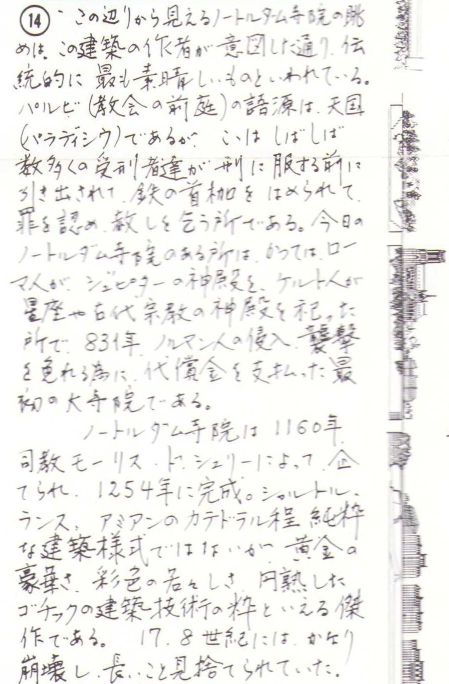 ⑭ この辺りから見えるノートルダム寺院の眺
めは、この建築の作者が意図した通り、伝
統的に最も素晴しいものといわれている。
パルビ(教会の前庭)の語源は、天国
(パラディシウ)であるが、こゝはしばしば
数多くの受刑者達が刑に服する前に
引き出されて、鉄の首枷をはめられて、
罪を認め、赦しを乞う所である。今日の
ノートルダム寺院のある所は、かつては、ロー
マ人が、ジュピターの神殿を、ケルト人が
星座や古代宗教の神殿を祀った
所で、831年、ノルマン人の侵入、襲撃
を免れる為に、代償金を支払った最
初の大寺院である。
ノートルダム寺院は1160年、
司教モーリス・ド・シュリーによって、企
てられ、1254年に完成。シャルトル、
ランス、アミアンのカテドラル程、純粋
な建築様式ではないが、黄金の
豪華さ、彩色の若々しさ、円熟した
ゴチックの建築技術の粋といえる傑
作である。 17、8世紀には、かなり
崩壊し、長いこと見捨てられていた。